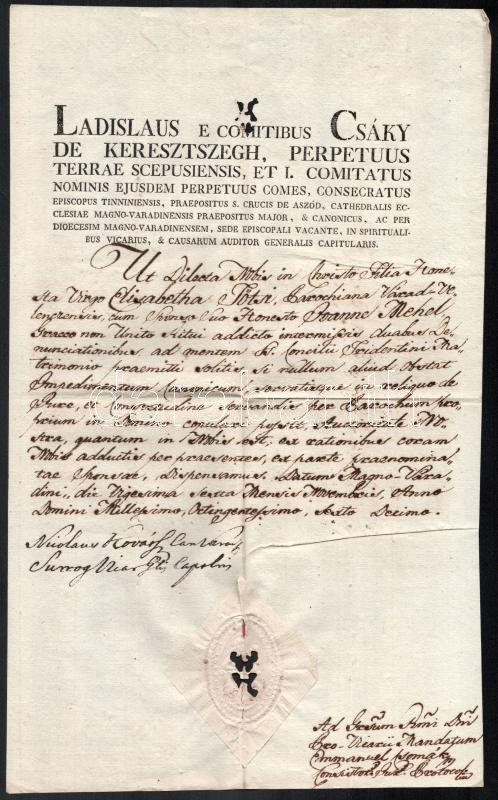 LADISLAUS E COMITIBUS CSÁKY
DE KERESZTSZEGH, PERPETUUS
TERRAE SCEPUSIENSIS, ET I. COMITATUS
NOMINIS EJUSDEM PERPETUUS COMES, CONSECRATUS
EPISCOPUS TINNINIENSIS, PRAEPOSITUS S. CRUCIS DE ASZÓD, CATHEDRALIS EC-
CLESIAE MAGNO-VARADINENSIS PRAEPOSITUS MAJOR, & CANONICUS, AC PER
DIOECESIM MAGNO-VARADINENSEM, SEDE EPISCOPALI VACANTE, IN SPIRITUALI-
BUS VICARIUS, & CAUSARUM AUDITOR GENERALIS CAPITULARIS.
Ut Dilecta Nobis in Christo Filia Hone-
sta Virgo Elisabetha Parochiana Varad-Ve-
lenczensis, cum Sponso Suo Honesto Joanne Mehel
Graeco non Unito Ritui addicto intermissis duabus De-
nunciationibus ad mentem S. Concilii Tridentini Ma-
trimonio praemitti solitis si nullum aliud obstat
Impedimentum Canonicum, servatisque in reliquo de
Jure, et Consvetudine servandis per Parochum pro-
prium in Domino copulari possit, Authoritate No-
stra, quantum in Nobis est, ex rationibus coram
Nobis adductis per praesentes, ex parte praenomina-
tae Sponsae, Dispensamus. Datum Magno-Vara-
dini, die Vigesima Sexta Mensis Novembris, Anno
Domini Millesimo, Octingentesimo, Sexto Decimo.
Nicolaus Kovács Can Varad
Surrog Vicar Glis Caplris
Ad
Pro-Vicarii Mandatum
Emmanuel